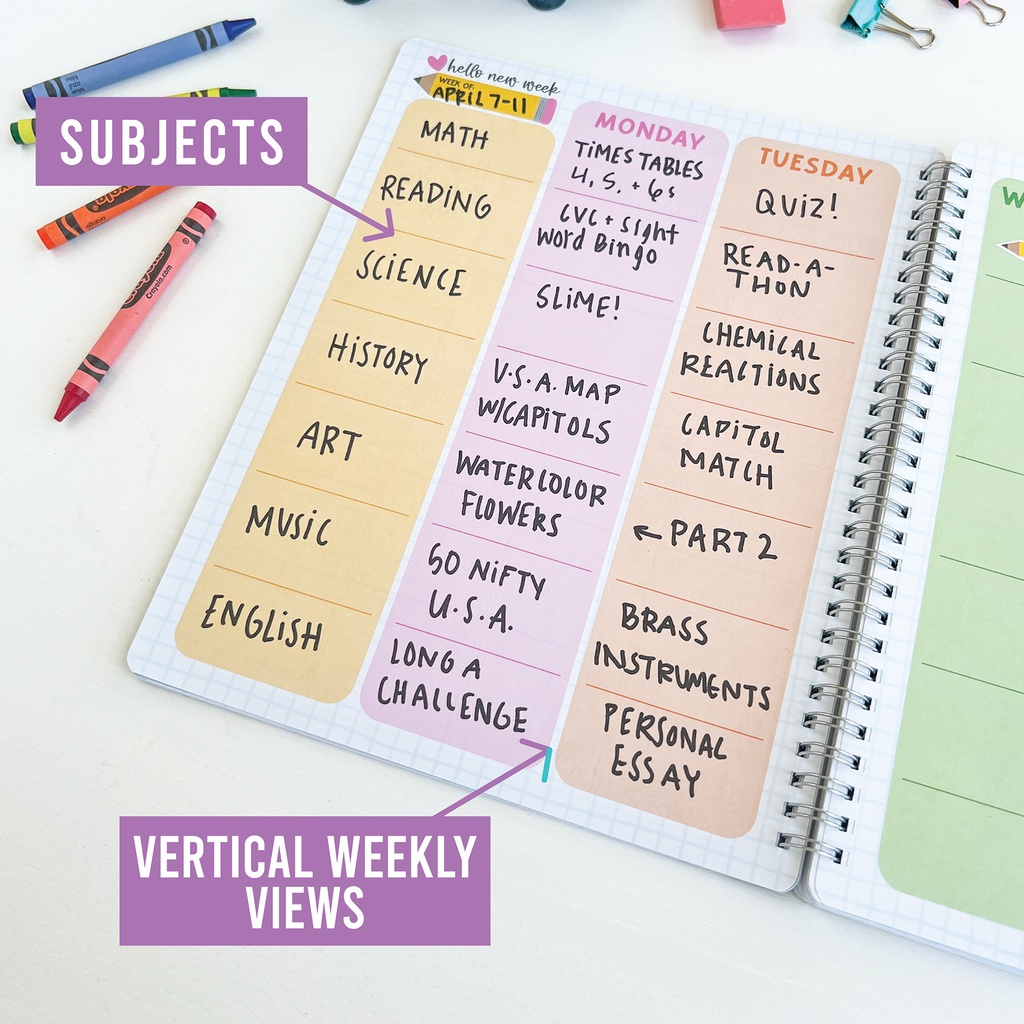 hello new week
WEEK OF:
APRIL 7-11
SUBJECTS
MATH
READING
SCIENCE
HISTORY
ART
MUSIC
ENGLISH
MONDAY
TIMES TABLES
4, 5, + 6s
CVC + sight
word Bingo
SLIME!
U.S.A. MAP
W/CAPITOLS
WATERCOLOR
FLOWERS
50 NIFTY
U.S.A.
LONG A
CHALLENGE
TUESDAY
QUIZ!
READ-A-
THON
CHEMICAL
REACTIONS
CAPITOL
MATCH
← PART 2
BRASS
INSTRUMENTS
PERSONAL
ESSAY
W
Crayola
Crayola
Crayola.com
VERTICAL WEEKLY
VIEWS